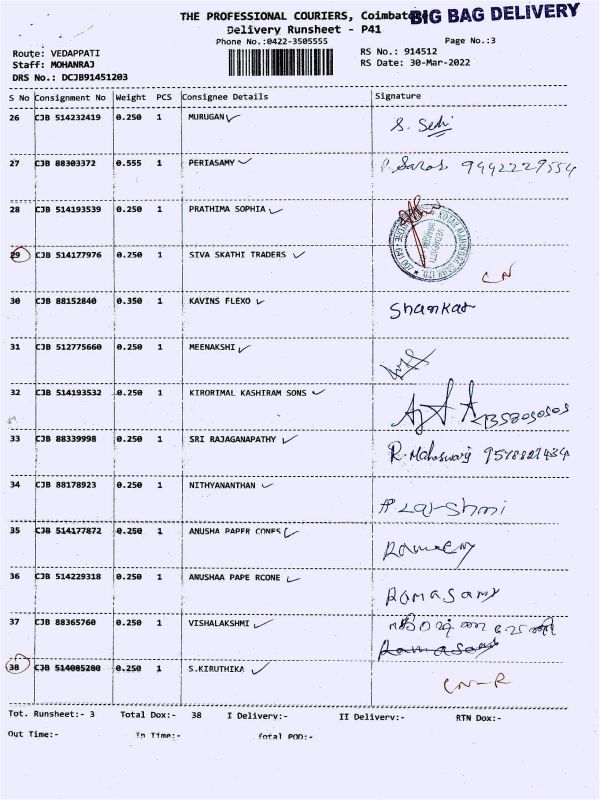 THE PROFESSIONAL COURIERS, Coimbato
BIG BAG DELIVERY
Delivery Runsheet - P41
Phone No.:0422-3505555
Page No.:3
Route: VEDAPPATI
RS No.: 914512
Staff: MOHANRAJ
RS Date: 30-Mar-2022
DRS No.: DCJB91451203
S No Consignment No Weight PCS Consignee Details Signature
26 CJB 514232419 0.250 1 MURUGAN S. Selvi
27 CJB 88303372 0.555 1 PERIASAMY P. Saros 9442229554
28 CJB 514193539 0.250 1 PRATHIMA SOPHIA
29 CJB 514177976 0.250 1 SIVA SKATHI TRADERS CN
30 CJB 88152840 0.350 1 KAVINS FLEXO Shankar
31 CJB 512775660 0.250 1 MEENAKSHI
32 CJB 514193532 0.250 1 KIRORIMAL KASHIRAM SONS
33 CJB 88339998 0.250 1 SRI RAJAGANAPATHY R. Maheswari
34 CJB 88178923 0.250 1 NITHYANANTHAN
35 CJB 514177872 0.250 1 ANUSHA PAPER CONES
36 CJB 514229318 0.250 1 ANUSHAA PAPE RCONE Ramasamy
37 CJB 88365760 0.250 1 VISHALAKSHMI
38 CJB 514085280 0.250 1 S.KIRUTHIKA CN-R
Tot. Runsheet:- 3 Total Dox:- 38 I Delivery:- II Delivery:- RTN Dox:-
Out Time:- In Time:- Total POD:-